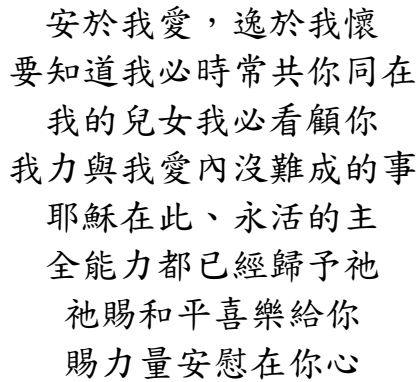 安於我愛，逸於我懷
要知道我必時常共你同在
我的兒女我必看顧你
我力與我愛內沒難成的事
耶穌在此、永活的主
全能力都已經歸予祂
祂賜和平喜樂給你
賜力量安慰在你心